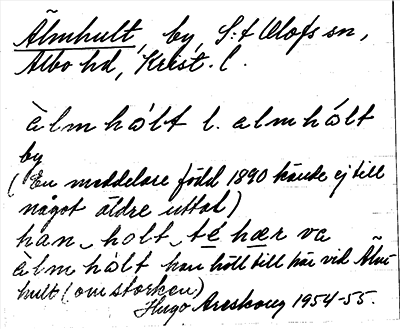 Älmhult, by, S:t Olofs sn,
Albo hd, Krist. l.
àlmhált l. almhált
by
(En meddelare född 1890 kände ej till
något äldre uttal)
han holt te hær va
àlmhált han höll till här vid Älm-
hult (om storken)
Hugo Areskoug 1954-55.